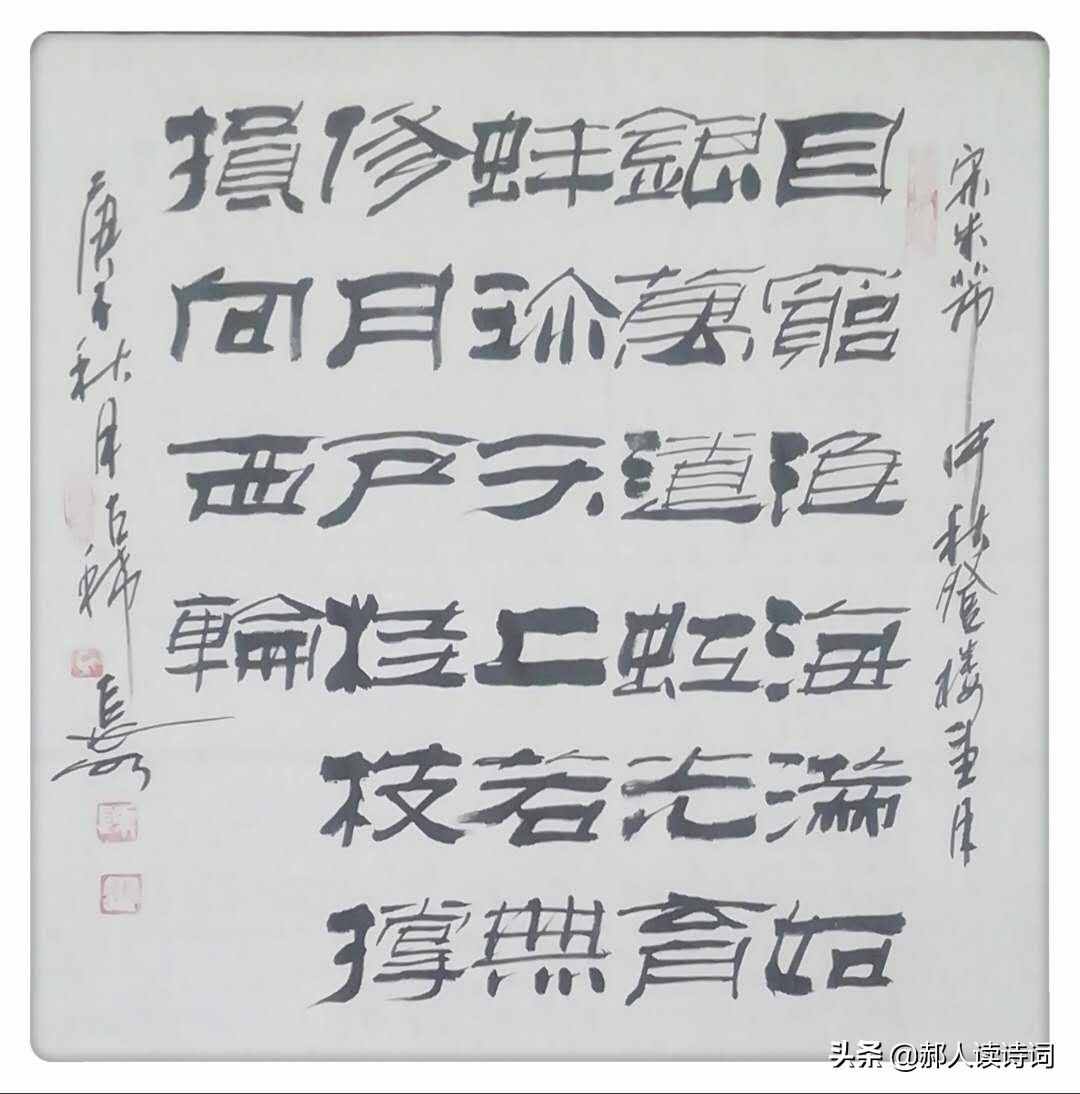 宋米芾 中秋登楼望月
目窮淮海滿如
銀萬道虹光育
蚌珎天上若無
修月户桂枝撐
損向西輪
庚子秋月古稀
头条 @郝人读诗词